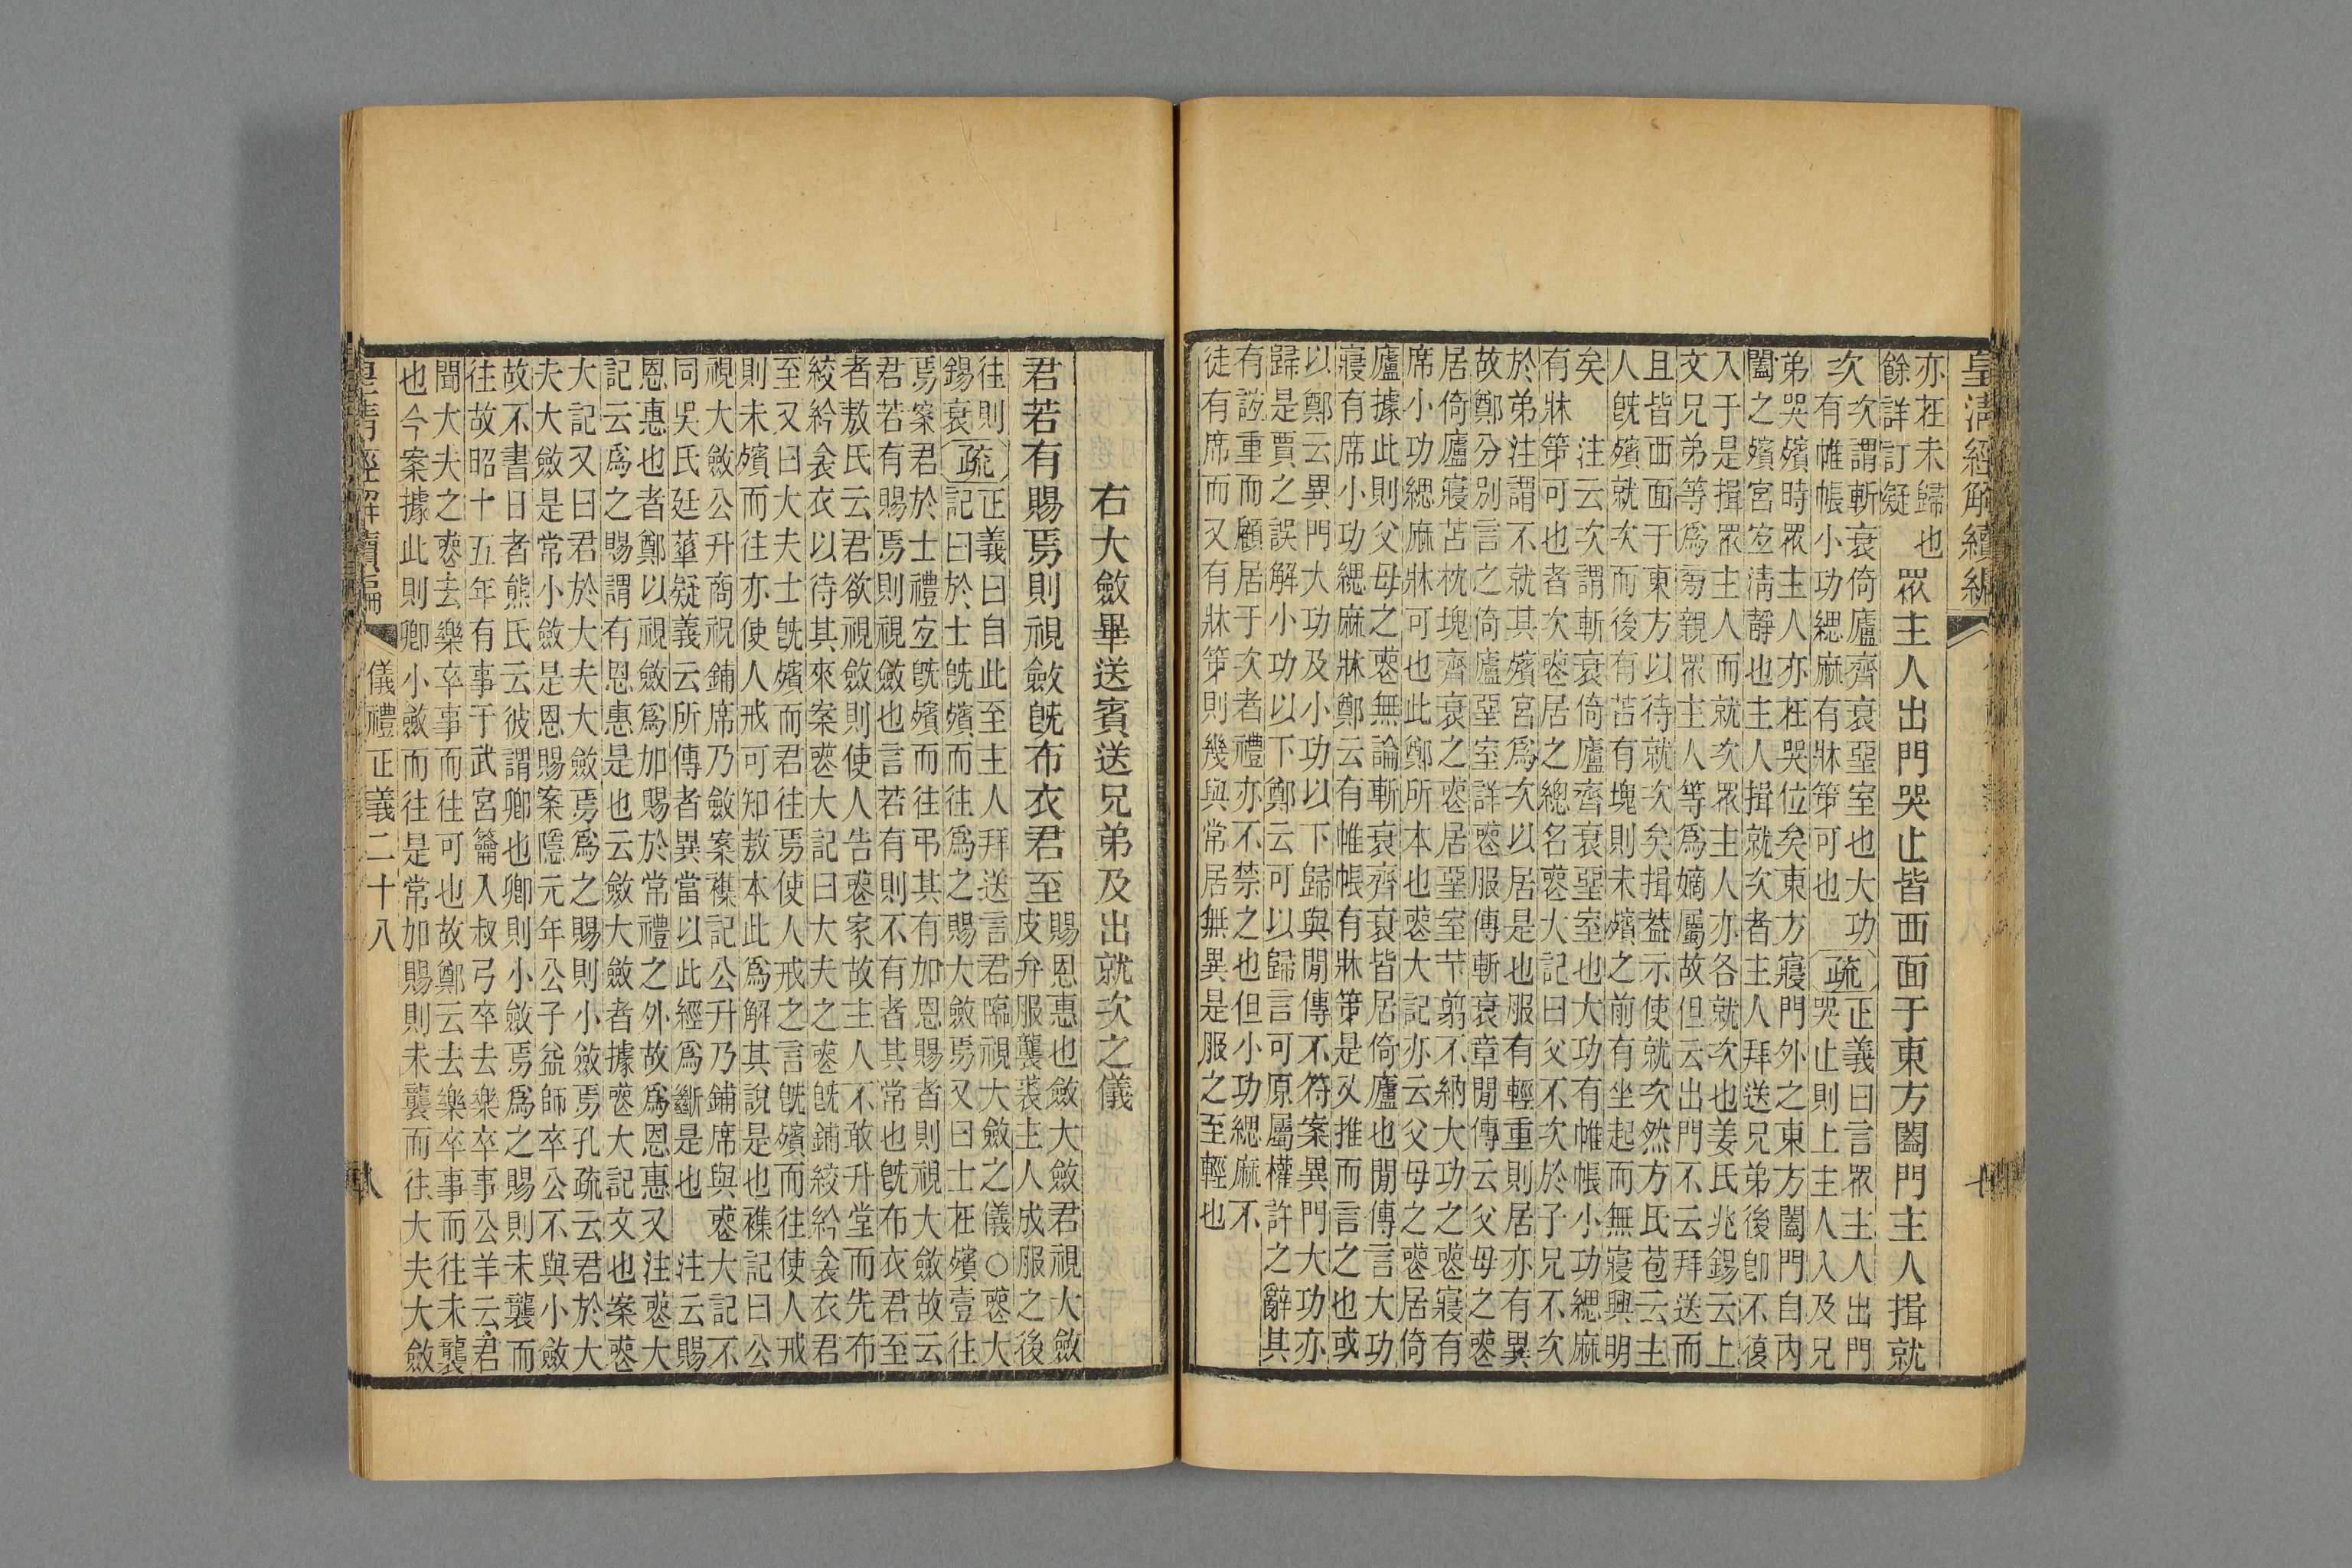 皇清經解續編
亦在未歸也
餘詳訂疑
眾主人出門哭止皆西面于東方闔門主人揖就
次
次謂斬衰倚廬齊衰堊室也大功
有帷帳小功緦麻有牀笫可也
疏
正義曰言眾主人出門
哭止則上主人入及兄
弟哭殯時眾主人亦在哭位矣東方寢門外之東方闔門自內
闔之殯宮宜清靜也主人揖就次者主人拜送兄弟後卽不復
入于是揖眾主人而就次眾主人亦各就次也姜氏兆錫云上
文兄弟等爲菊親眾主人等爲嫡屬故但云出門不云拜送而
且皆西面于東方以待就次矣揖葢示使就次然方氏苞云主
人旣殯就次而後有苫有塊則未殯之前有坐起而無寢興明
矣　注云次謂斬衰倚廬齊衰堊室也大功有帷帳小功緦麻
有牀笫可也者次喪居之總名喪大記曰父不次於子兄不次
於弟注謂不就其殯宮爲次以居是也服有輕重則居亦有異
故鄭分別言之倚廬堊室詳喪服傳斬衰章閒傳云父母之喪
居倚廬寢苫枕塊齊衰之喪居堊室芐翦不納大功之喪寢有
席小功緦麻牀可也此鄭所本也喪大記亦云父母之喪居倚
廬據此則父母之喪無論斬衰齊衰皆居倚廬也閒傳言大功
寢有席小功緦麻牀鄭云有帷帳有牀笫是又推而言之也或
以鄭云異門大功及小功以下歸與閒傳不符案異門大功亦
歸是賈之誤解小功以下鄭云可以歸言可原屬權許之辭其
有誼重而顧居于次者禮亦不禁之也但小功緦麻不
徒有席而又有牀笫則幾與常居無異是服之至輕也
右大斂畢送賓送兄弟及出就次之儀
君若有賜焉則視斂旣布衣君至
賜恩惠也斂大斂君視大斂
皮弁服襲裘主人成服之後
往則
錫衰
疏
正義曰自此至主人拜送言君臨視大斂之儀○喪大
記曰於士旣殯而往爲之賜大斂焉又曰士在殯壹往
焉案君於士禮宜旣殯而往弔其有加恩賜者則視大斂故云
君若有賜焉則視斂也言若有則不有者其常也旣布衣君至
者敖氏云君欲視斂則使人告喪家故主人不敢升堂而先布
絞紟衾衣以待其來案喪大記曰大夫之喪旣鋪絞紟衾衣君
至又曰大夫士旣殯而君往焉使人戒之言旣殯而往使人戒
則未殯而往亦使人戒可知敖本此爲解其說是也襍記曰公
視大斂公升商祝鋪席乃斂案襍記公升乃鋪席與喪大記不
同吳氏廷華疑義云所傳者異當以此經爲斷是也　注云賜
恩惠也者鄭以視斂爲加賜於常禮之外故爲恩惠又注喪大
記云爲之賜謂有恩惠是也云斂大斂者據喪大記文也案喪
大記又曰君於大夫大斂焉爲之賜則小斂焉孔疏云君於大
夫大斂是常小斂是恩賜案隱元年公子益師卒公不與小斂
故不書日者熊氏云彼謂卿也卿則小斂焉爲之賜則未襲而
往故昭十五年有事于武宮籥入叔弓卒去樂卒事公羊云君
聞大夫之喪去樂卒事而往可也故鄭云去樂卒事而往未襲
也今案據此則卿小斂而往是常加賜則未襲而往大夫大斂
皇清經解續編
儀禮正義二十八
八